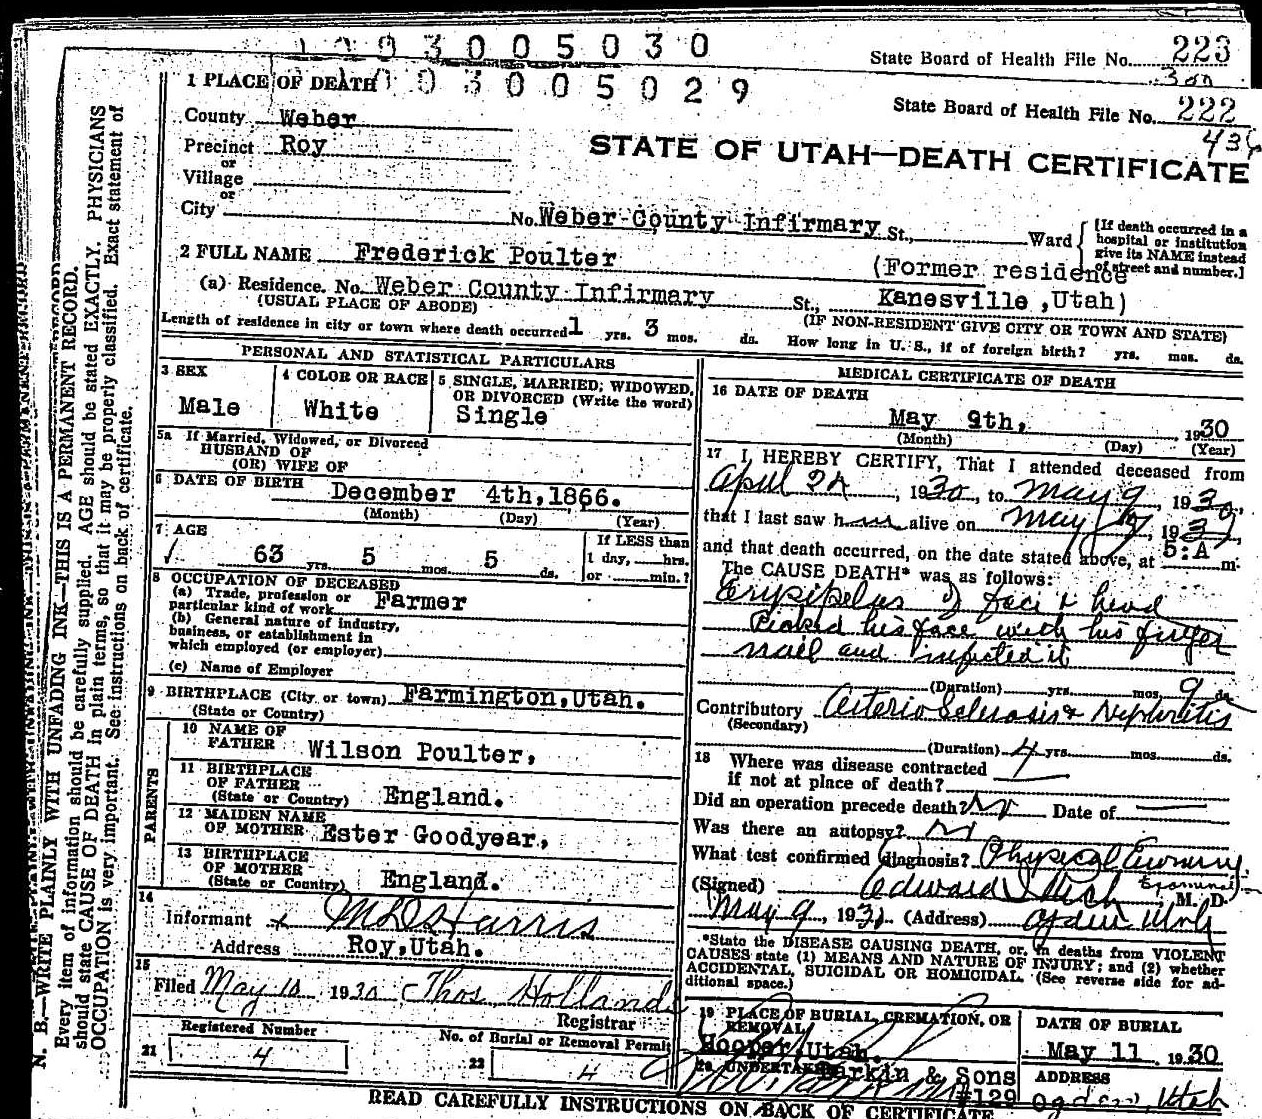 1003005030
State Board of Health File No. 223
300
1 PLACE OF DEATH 1003005029
State Board of Health File No. 222
436
County Weber
Precinct Roy
or
Village
or
City
STATE OF UTAH—DEATH CERTIFICATE
No. Weber County Infirmary St., Ward
[If death occurred in a hospital or institution give its NAME instead of street and number.]
2 FULL NAME Frederick Poulter
(Former residence
(a) Residence. No. Weber County Infirmary St., Kanesville ,Utah)
(USUAL PLACE OF ABODE)
(IF NON-RESIDENT GIVE CITY OR TOWN AND STATE)
Length of residence in city or town where death occurred 1 yrs. 3 mos. ds. How long in U. S., if of foreign birth? yrs. mos. ds.
PERSONAL AND STATISTICAL PARTICULARS
3 SEX
Male
4 COLOR OR RACE
White
5 SINGLE, MARRIED, WIDOWED,
OR DIVORCED (Write the word)
Single
5a If Married, Widowed, or Divorced
HUSBAND OF
(OR) WIFE OF
6 DATE OF BIRTH
December 4th,1866.
(Month) (Day) (Year)
7 AGE
63 yrs. 5 mos. 5 ds.
If LESS than
1 day, hrs.
or min.?
8 OCCUPATION OF DECEASED
(a) Trade, profession or
particular kind of work Farmer
(b) General nature of industry,
business, or establishment in
which employed (or employer)
(c) Name of Employer
9 BIRTHPLACE (City or town) Farmington,Utah.
(State or Country)
PARENTS
10 NAME OF
FATHER Wilson Poulter,
11 BIRTHPLACE
OF FATHER
(State or Country) England.
12 MAIDEN NAME
OF MOTHER Ester Goodyear,
13 BIRTHPLACE
OF MOTHER
(State or Country) England.
14
Informant x M D S Harris
Address Roy,Utah.
15
Filed May 10 1930 Thos Holland
Registrar
Registered Number
21 4
No. of Burial or Removal Permit
22 4
MEDICAL CERTIFICATE OF DEATH
16 DATE OF DEATH
May 9th, 1930
(Month) (Day) (Year)
17 I HEREBY CERTIFY, That I attended deceased from
April 24, 1930, to May 9, 1930,
that I last saw h alive on May 9, 1930,
and that death occurred, on the date stated above, at 5:A m.
The CAUSE DEATH* was as follows:
Erysipelas of face & head
Picked his face with his finger
nail and infected it
(Duration) yrs. mos. 9 ds.
Contributory Arterio Sclerosis & Nephritis
(Secondary)
(Duration) 4 yrs. mos. ds.
18 Where was disease contracted
if not at place of death?
Did an operation precede death? No Date of
Was there an autopsy? No
What test confirmed diagnosis? Physical
(Signed) Edward I Rich M. D.
May 9, 1930 (Address) Ogden Utah
*State the DISEASE CAUSING DEATH, or, in deaths from VIOLENT
CAUSES state (1) MEANS AND NATURE OF INJURY; and (2) whether
ACCIDENTAL, SUICIDAL OR HOMICIDAL. (See reverse side for ad-
ditional space.)
19 PLACE OF BURIAL, CREMATION, OR
REMOVAL
Hooper,Utah.
DATE OF BURIAL
May 11 1930
20 UNDERTAKER Larkin & Sons
#129
ADDRESS
Ogden, Utah
READ CAREFULLY INSTRUCTIONS ON BACK OF CERTIFICATE
N. B.—WRITE PLAINLY WITH UNFADING INK—THIS IS A PERMANENT RECORD.
Every item of information should be carefully supplied. AGE should be stated EXACTLY. PHYSICIANS
should state CAUSE OF DEATH in plain terms, so that it may be properly classified. Exact statement of
OCCUPATION is very important. See instructions on back of certificate.